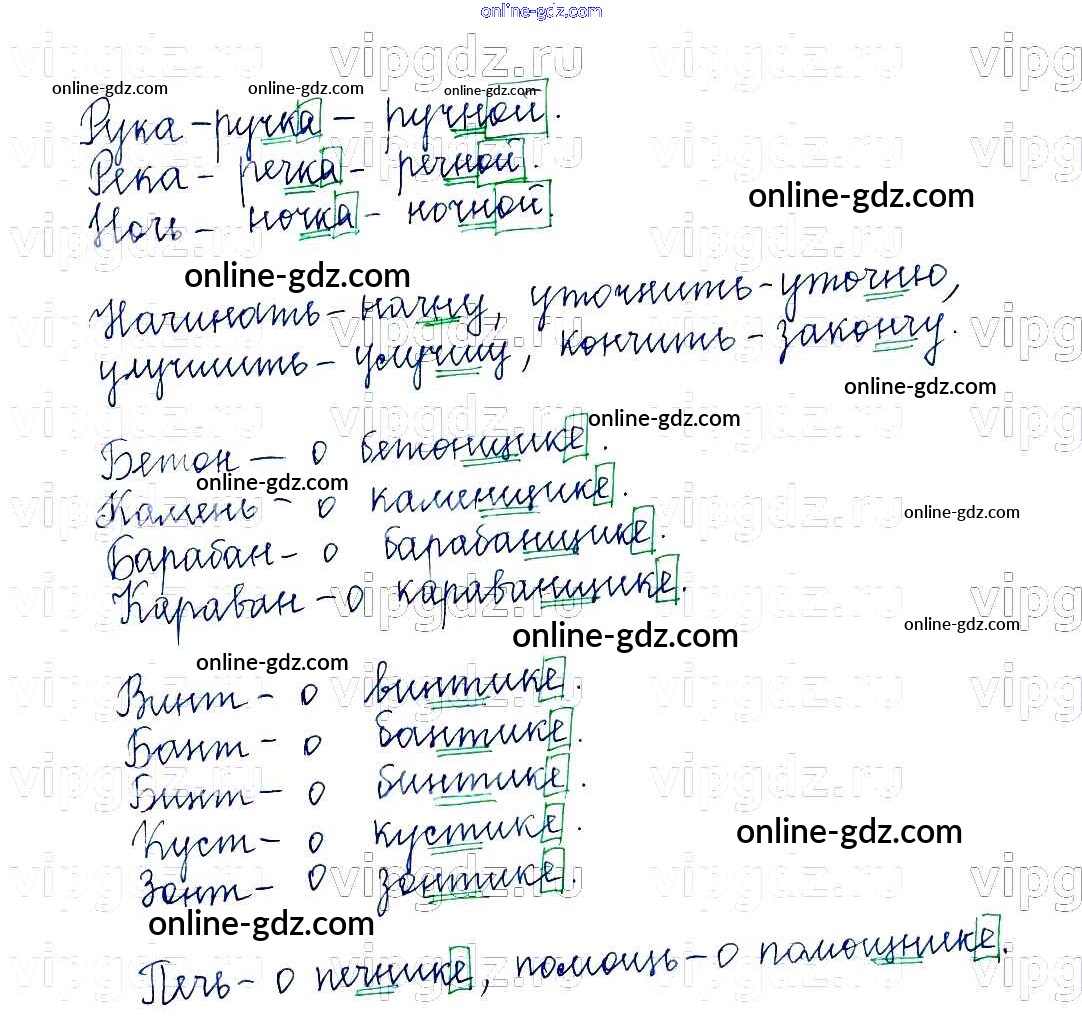 online-gdz.com
vipgdz.ru vipgdz.ru vipgdz.ru vipg
online-gdz.com online-gdz.com online-gdz.com
Рука - ручка - ручной.
Река - речка - речной.
online-gdz.com
Ночь - ночка - ночной.
online-gdz.com
Начинать - начну, уточнить - уточню,
улучшить - улучшу, кончить - закончу.
online-gdz.com
online-gdz.com
Бетон - о бетонщике.
online-gdz.com
Камень - о каменщике.
online-gdz.com
Барабан - о барабанщике.
Караван - о караванщике.
online-gdz.com
online-gdz.com
online-gdz.com
Винт - о винтике.
Бант - о бантике.
Бинт - о бинтике.
Куст - о кустике.
online-gdz.com
Зонт - о зонтике.
online-gdz.com
Печь - о печнике, помощь - о помощнике.